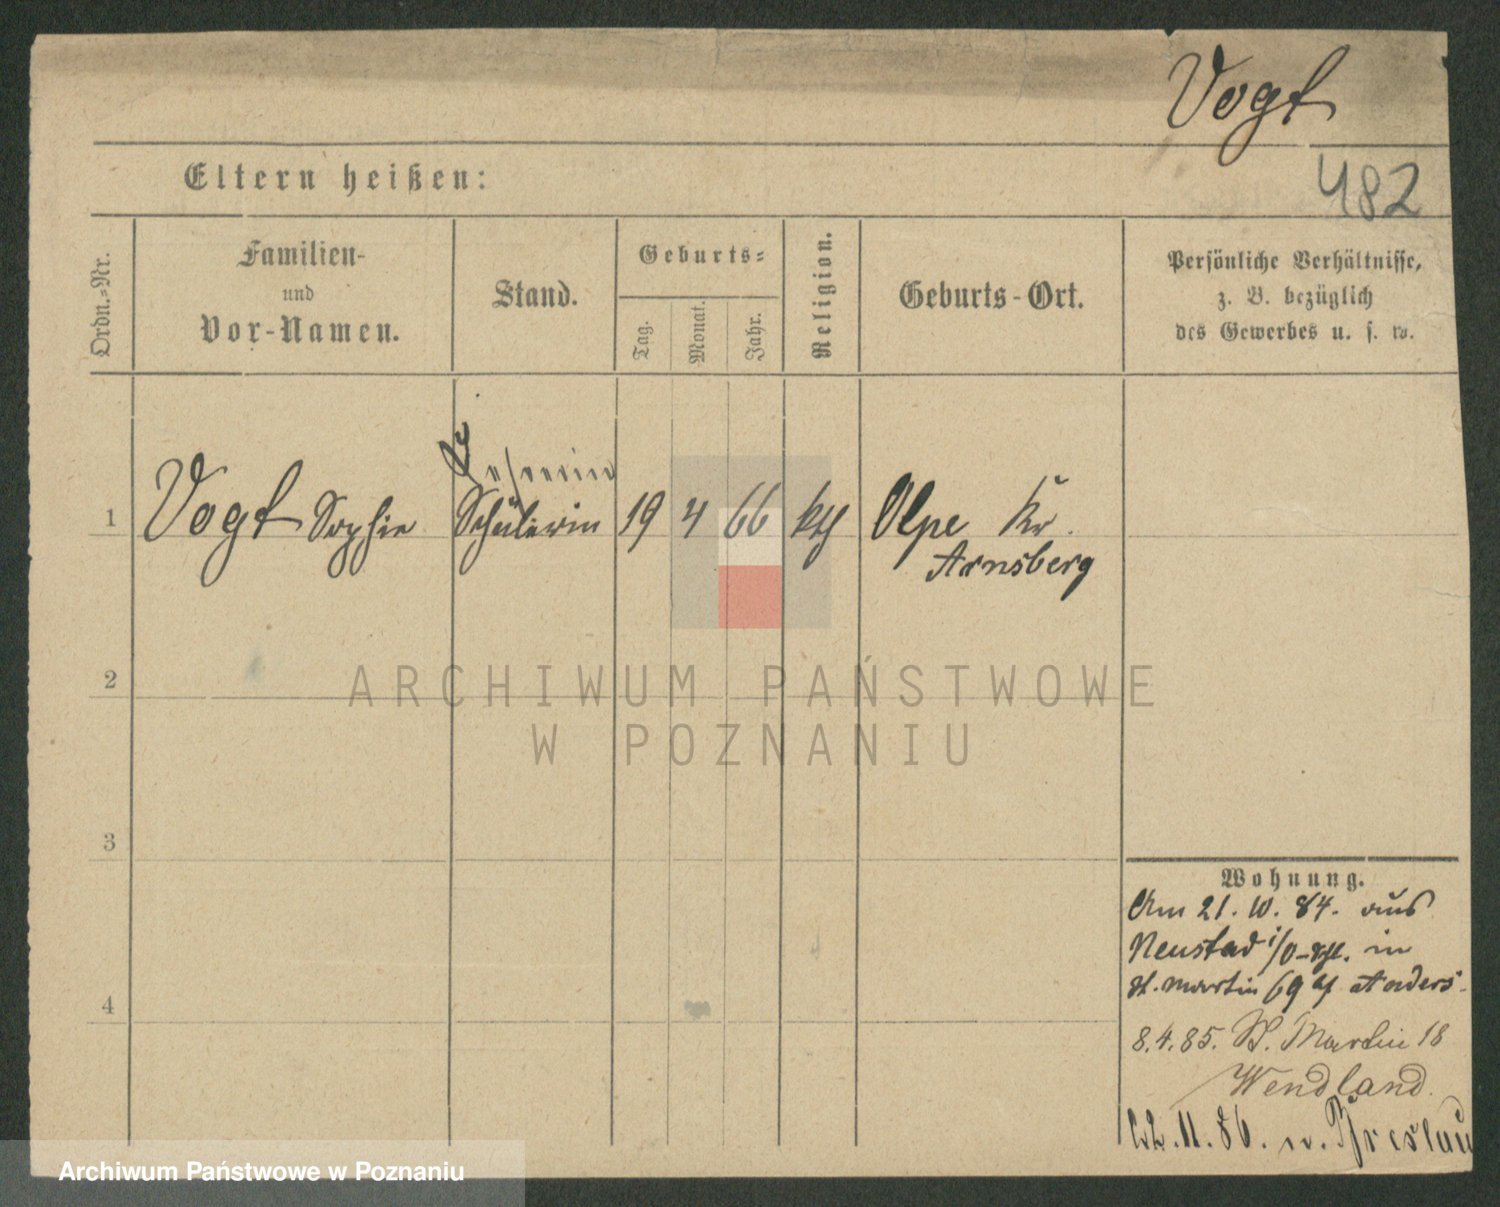 Vogt
482
Eltern heißen:
Ordn.-Nr.
Familien-
und
Vor-Namen.
Stand.
Geburts-
Tag.
Monat.
Jahr.
Religion.
Geburts-Ort.
Persönliche Verhältnisse,
z. B. bezüglich
des Gewerbes u. s. w.
Lehrerin
1 Vogt Sophie Schülerin 19 4 66 kth Olpe Kr.
Arnsberg
2
3
4
Wohnung.
Am 21. 10. 84. aus
Neustad i/O-Schl. in
St. Martin 69 bei
8.4.85. St. Martin 18
Wendland.
11. 86. n. Breslau
ARCHIWUM PAŃSTWOWE
W POZNANIU
Archiwum Państwowe w Poznaniu